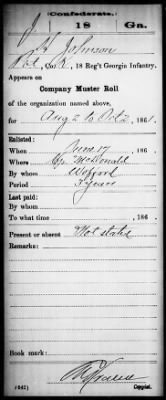 Confederate.
J 18 Ga.
J H Johnson
Pvt, Co. K, 18 Reg't Georgia Infantry.
Appears on
Company Muster Roll
of the organization named above,
for Aug 2 to Oct 2, 1861.
Enlisted:
When June 17, 186 .
Where Cp. McDonald
By whom Wofford
Period 3 years
Last paid:
By whom
To what time , 186 .
Present or absent Not stated
Remarks:
Book mark:
(642) Copyist.